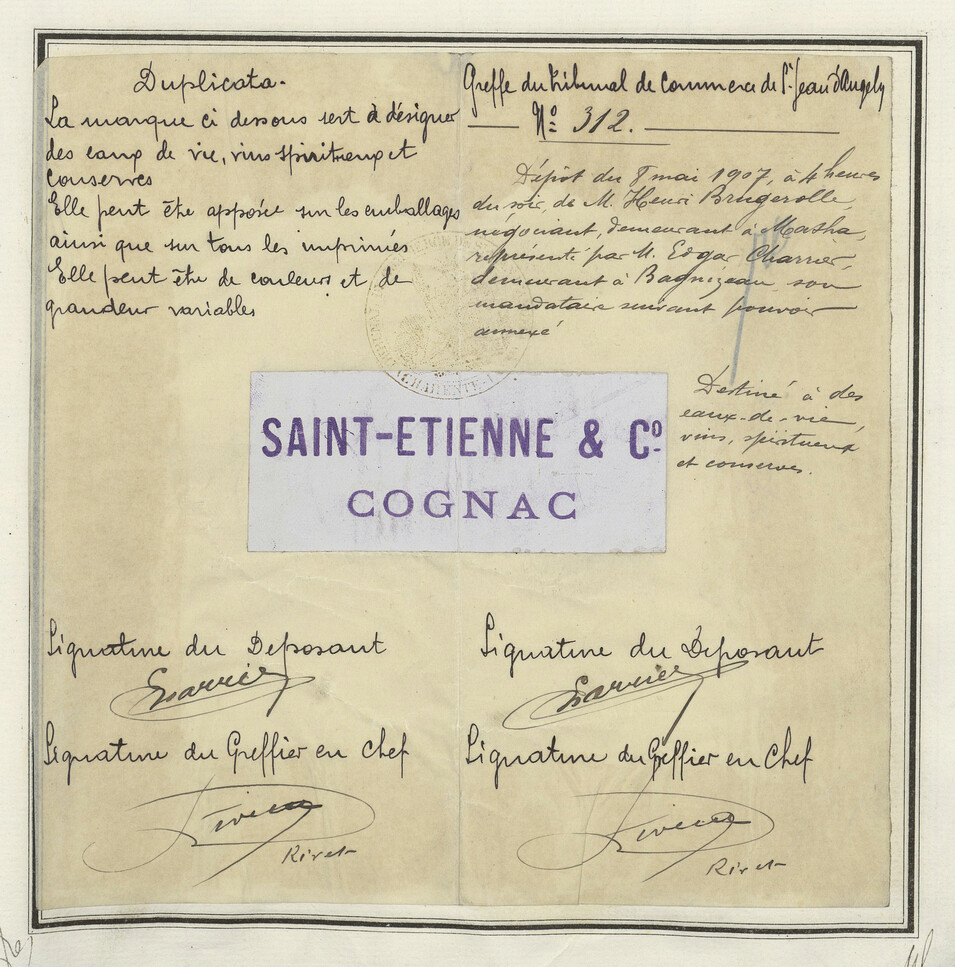 Duplicata.
La marque ci dessous sert à désigner
des eaux de vie, vins spiritueux et
conserves
Elle peut être apposée sur les emballages
ainsi que sur tous les imprimés
Elle peut être de couleurs et de
grandeur variables
Greffe du tribunal de Commerce de St Jean d'Angely
No 312.
Dépôt du 8 mai 1907, à 4 heures
du soir, de M. Henri Brugerolle,
négociant, demeurant à Matha,
représenté par M. Edgar Charrier,
demeurant à Bagnizeau, son
mandataire suivant pouvoir
annexé
Destiné à des
eaux-de-vie,
vins, spiritueux
et conserves.
CHARENTE-
SAINT-ETIENNE & Co.
COGNAC
Signature du Deposant
Charrier
Signature du Greffier en Chef
Rivet
Signature du Déposant
Charrier
Signature du Greffier en Chef
Rivet